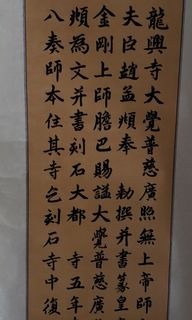 龍興寺大覺普慈廣照無上帝師
夫臣趙孟頫奉 勑撰并書篆皇
金剛上師膽巴賜謚大覺普慈廣
頫為文并書刻石大都 寺五年
八奏師本住其寺乞刻石寺中復